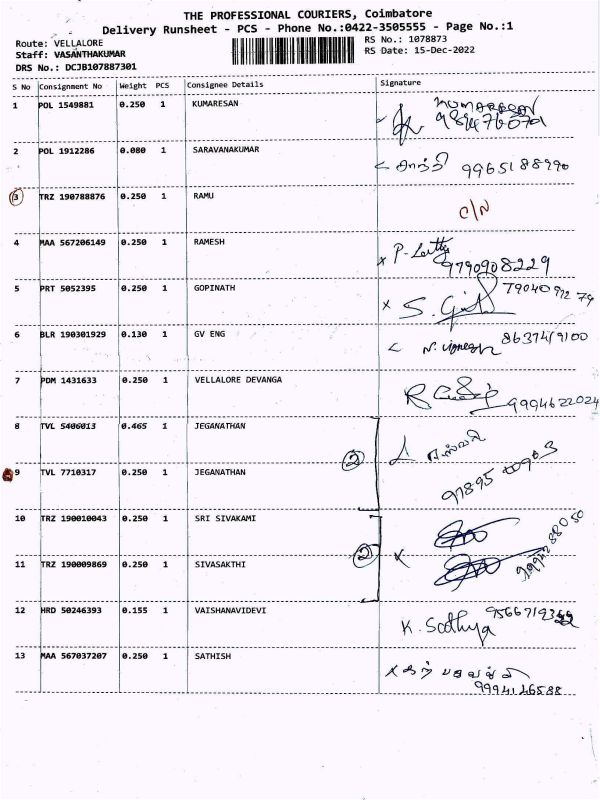 THE PROFESSIONAL COURIERS, Coimbatore
Delivery Runsheet - PCS - Phone No.:0422-3505555 - Page No.:1
Route: VELLALORE
RS No.: 1078873
Staff: VASANTHAKUMAR
RS Date: 15-Dec-2022
DRS No.: DCJB107887301
S No Consignment No Weight PCS Consignee Details Signature
1 POL 1549881 0.250 1 KUMARESAN KUMARESAN
2 POL 1912286 0.080 1 SARAVANAKUMAR சாந்தி 9965188990
3 TRZ 190788876 0.250 1 RAMU C/N
4 MAA 567206149 0.250 1 RAMESH P-
9790908229
5 PRT 5052395 0.250 1 GOPINATH S. 7904091279
6 BLR 190301929 0.130 1 GV ENG N. 8637419100
7 PDM 1431633 0.250 1 VELLALORE DEVANGA R
9994622024
8 TVL 5406013 0.465 1 JEGANATHAN
2
9 TVL 7710317 0.250 1 JEGANATHAN 97895
10 TRZ 190010043 0.250 1 SRI SIVAKAMI
2
11 TRZ 190009869 0.250 1 SIVASAKTHI
12 HRD 50246393 0.155 1 VAISHANAVIDEVI K. Sathya
13 MAA 567037207 0.250 1 SATHISH
9994146588